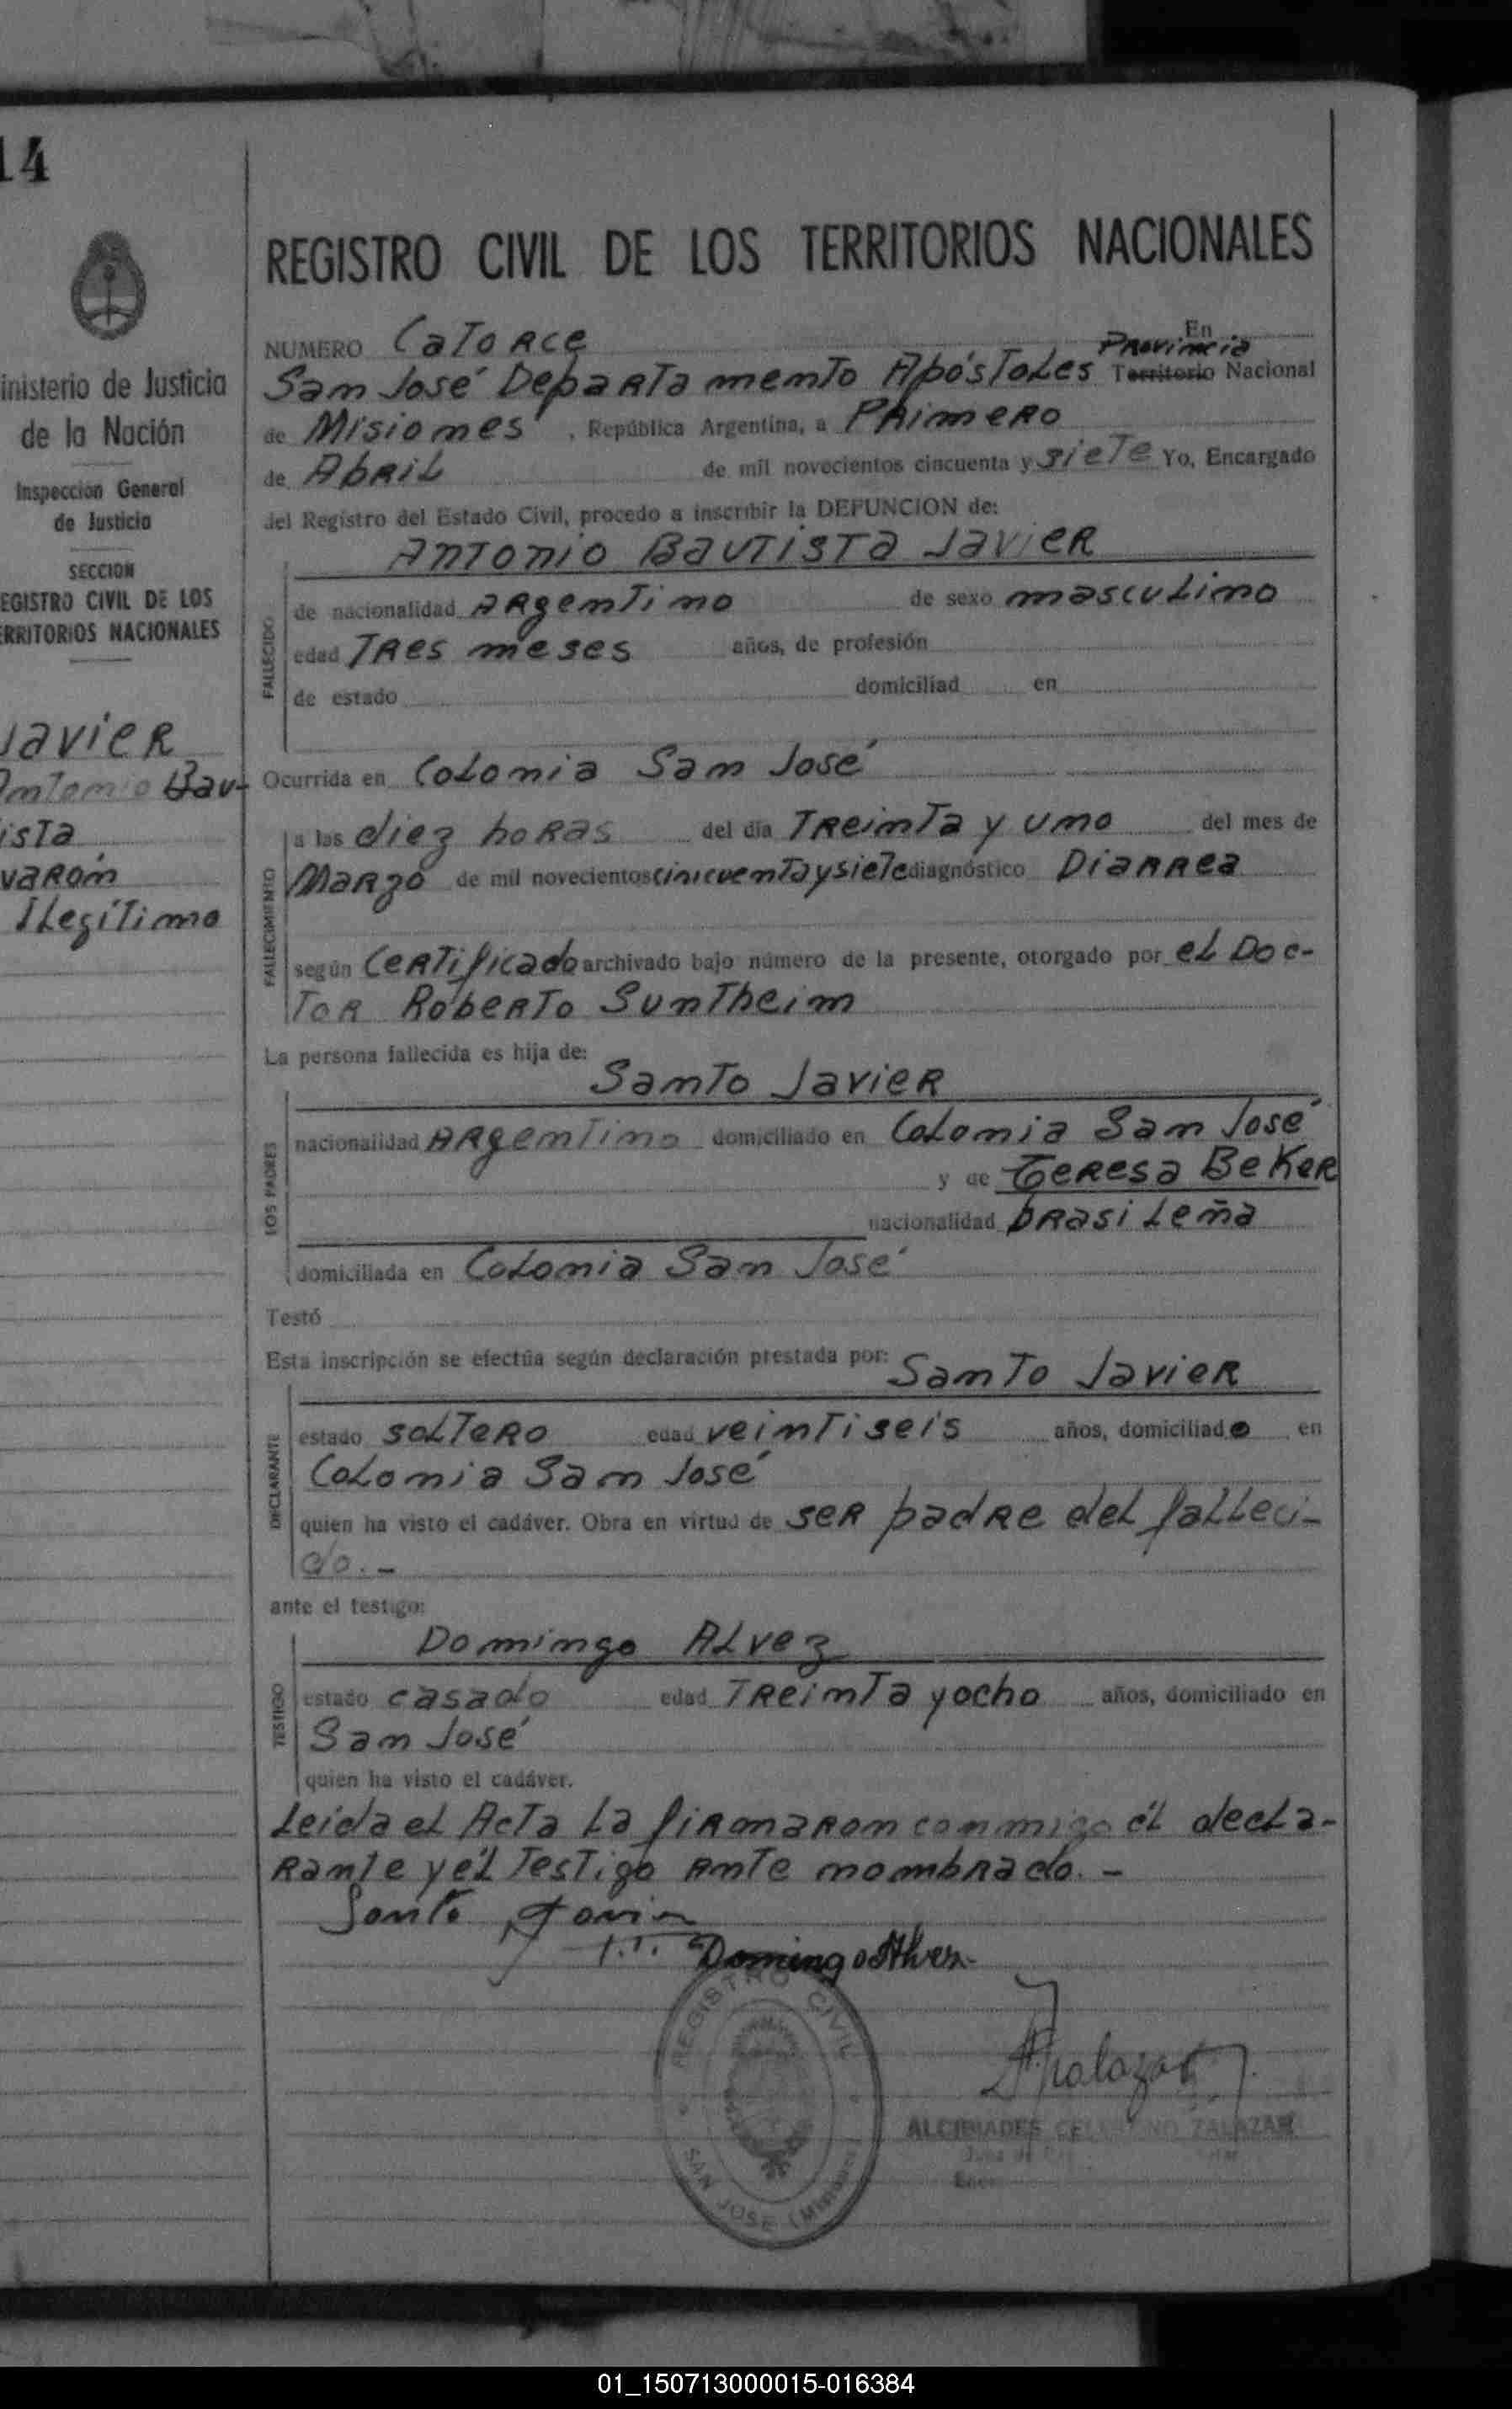 14
inisterio de Justicia
de la Nación
Inspección General
de Justicia
SECCION
EGISTRO CIVIL DE LOS
ERRITORIOS NACIONALES
Javier
Antonio Bau-
ista
varon
Ilegítimo
REGISTRO CIVIL DE LOS TERRITORIOS NACIONALES
NUMERO Catorce En
Provincia
San José Departamento Apóstoles Territorio Nacional
de Misiones, República Argentina, a Primero
de Abril de mil novecientos cincuenta y siete Yo, Encargado
del Registro del Estado Civil, procedo a inscribir la DEFUNCION de:
Antonio Bautista Javier
FALLECIDO
de nacionalidad Argentino de sexo masculino
edad Tres meses años, de profesión
de estado domiciliad en
Ocurrida en Colonia San José
FALLECIMIENTO
a las diez horas del día Treinta y uno del mes de
Marzo de mil novecientos cincuenta y siete diagnóstico Diarrea
según Certificado archivado bajo número de la presente, otorgado por el Doc-
tor Roberto Suntheim
La persona fallecida es hija de:
Santo Javier
LOS PADRES
nacionalidad Argentino domiciliado en Colonia San José
y de Teresa Beker
nacionalidad brasileña
domiciliada en Colonia San José
Testó
Esta inscripción se efectúa según declaración prestada por: Santo Javier
DECLARANTE
estado soltero edad veintiseis años, domiciliado en
Colonia San José
quien ha visto el cadáver. Obra en virtud de ser padre del falleci-
do.-
ante el testigo:
Domingo Alvez
TESTIGO
estado casado edad Treinta y ocho años, domiciliado en
San José
quien ha visto el cadáver.
Leída el Acta la firmaron conmigo él decla-
rante y él Testigo ante nombrado.-
Santo Javier
Domingo Alvez
REGISTRO CIVIL
SAN JOSE (Misiones)
ALCIBIADES CELESTINO ZALAZAR
01_150713000015-016384